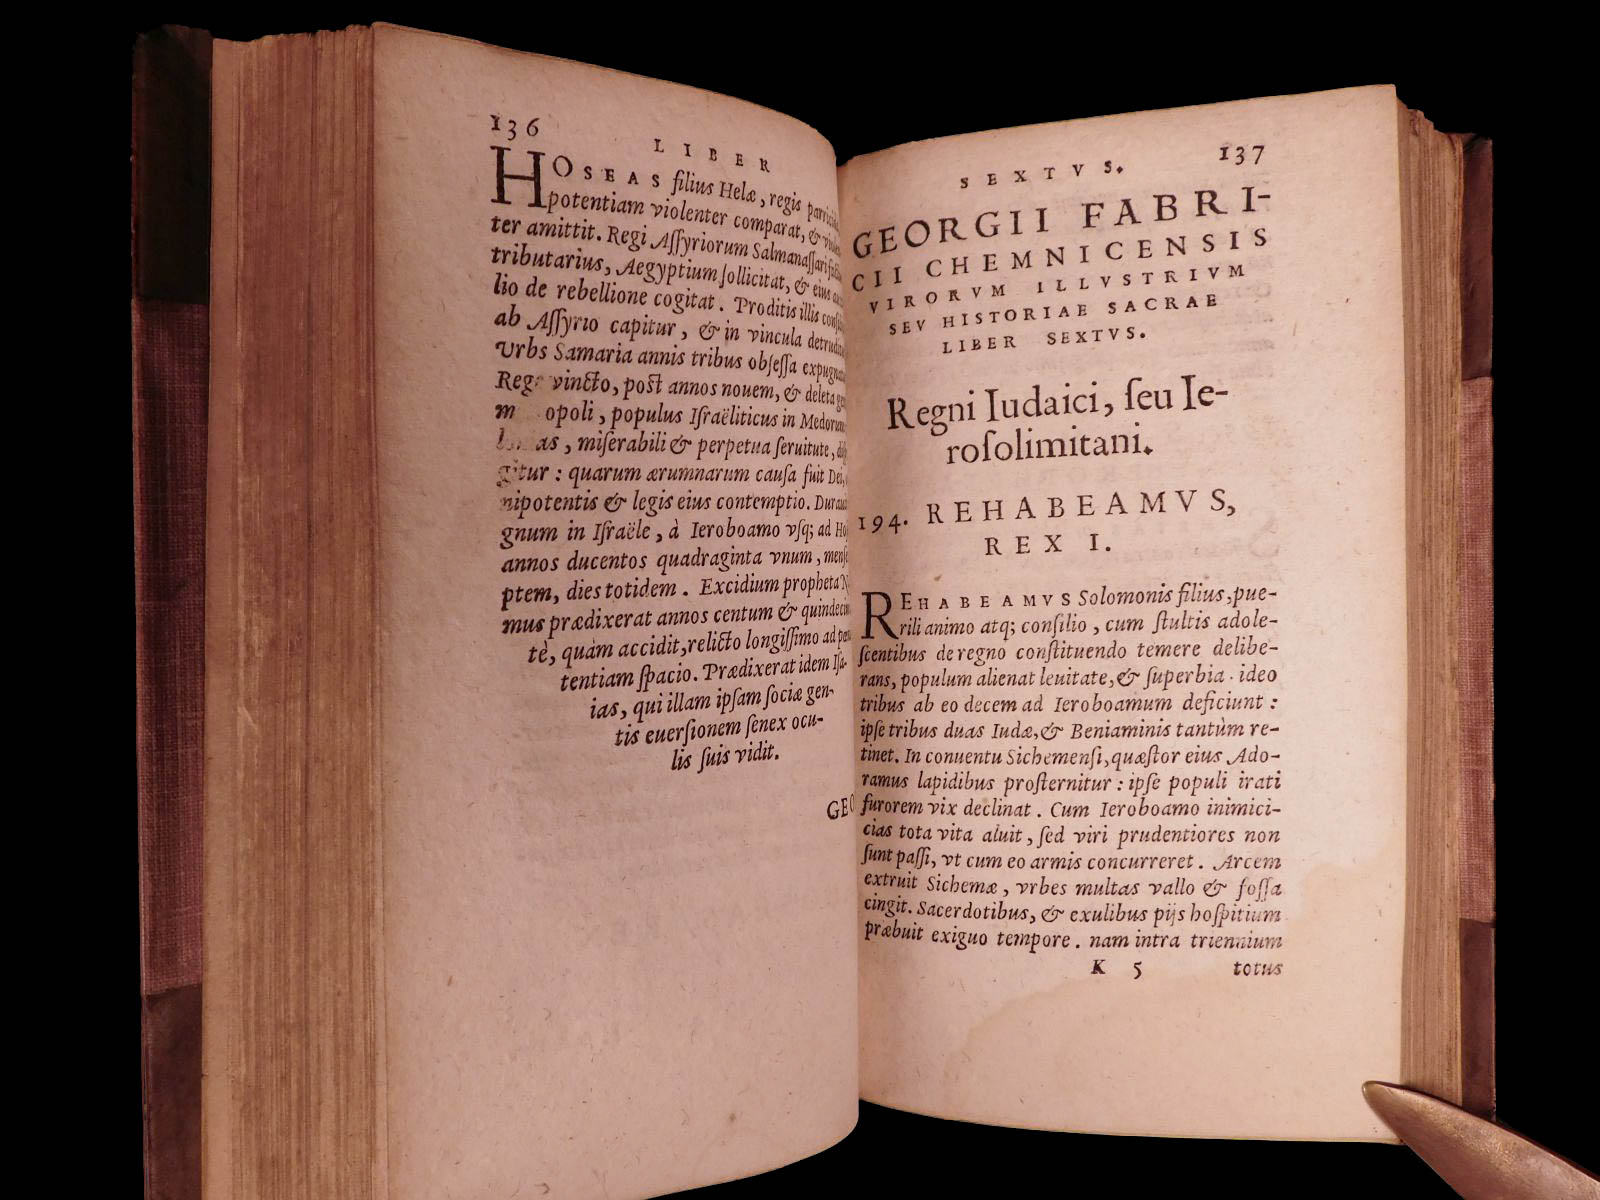 136
LIBER
HOSEAS filius Helæ, regis
potentiam violenter comparat, &
ter amittit. Regi Aſſyriorum Salmanaſſari
tributarius, Aegyptium ſollicitat, & eius
lio de rebellione cogitat. Proditis illis
ab Aſſyrio capitur, & in vincula
Vrbs Samaria annis tribus obſeſſa
vincto, poſt annos nouem, & deleta
opoli, populus Iſraëliticus in
as, miſerabili & perpetua ſeruitute,
gitur : quarum ærumnarum cauſa fuit Dei,
nipotentis & legis eius contemptio.
gnum in Iſraële, à Ieroboamo vſq; ad
annos ducentos quadraginta vnum,
ptem, dies totidem. Excidium propheta
mus prædixerat annos centum &
tè, quàm accidit, relicto longiſſimo ad
tentiam ſpacio. Prædixerat idem Iſa-
ias, qui illam ipſam ſociæ gen-
tis euerſionem ſenex ocu-
lis ſuis vidit.
GEO
SEXTVS.
137
GEORGII FABRI-
CII CHEMNICENSIS
VIRORVM ILLVSTRIVM
SEV HISTORIAE SACRAE
LIBER SEXTVS.
Regni Iudaici, ſeu Ie-
roſolimitani.
194. REHABEAMVS,
REX I.
REHABEAMVS Solomonis filius, pue-
rili animo atq; conſilio, cum ſtultis adole-
ſcentibus de regno conſtituendo temere delibe-
rans, populum alienat leuitate, & ſuperbia. ideo
tribus ab eo decem ad Ieroboamum deficiunt :
ipſe tribus duas Iudæ, & Beniaminis tantùm re-
tinet. In conuentu Sichemenſi, quæſtor eius Ado-
ramus lapidibus proſternitur : ipſe populi irati
furorem vix declinat. Cum Ieroboamo inimici-
cias tota vita aluit, ſed viri prudentiores non
ſunt paſſi, vt cum eo armis concurreret. Arcem
extruit Sichemæ, vrbes multas vallo & foſſa
cingit. Sacerdotibus, & exulibus pijs hoſpitium
præbuit exiguo tempore. nam intra triennium
K 5
totus